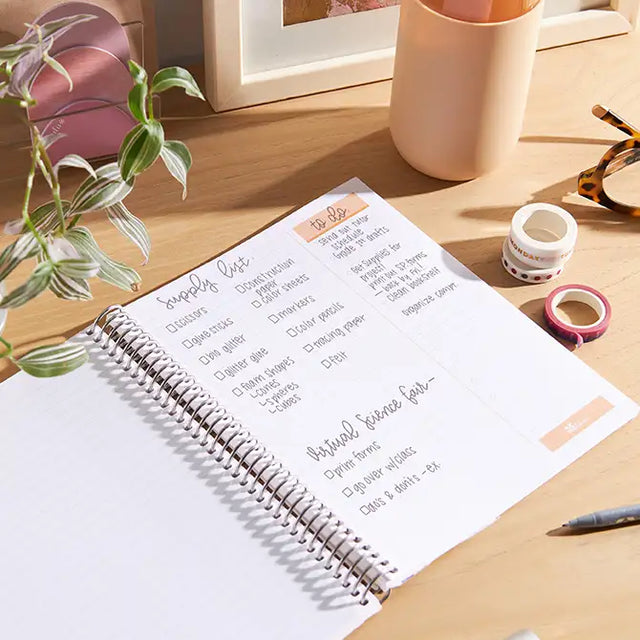 Supply list
scissors
glue sticks
bio glitter
glitter glue
foam shapes
↳cones
↳spheres
↳cubes
construction
paper
color sheets
markers
color pencils
tracing paper
felt
virtual Science Fair -
print forms
go over w/class
do's & dont's - ex.
to do
send out tutor
schedule
Grade 1st drafts
Get Supplies for
project
print SP forms
- back by fri.
clean bookshelf
organize compt.
MONDAY